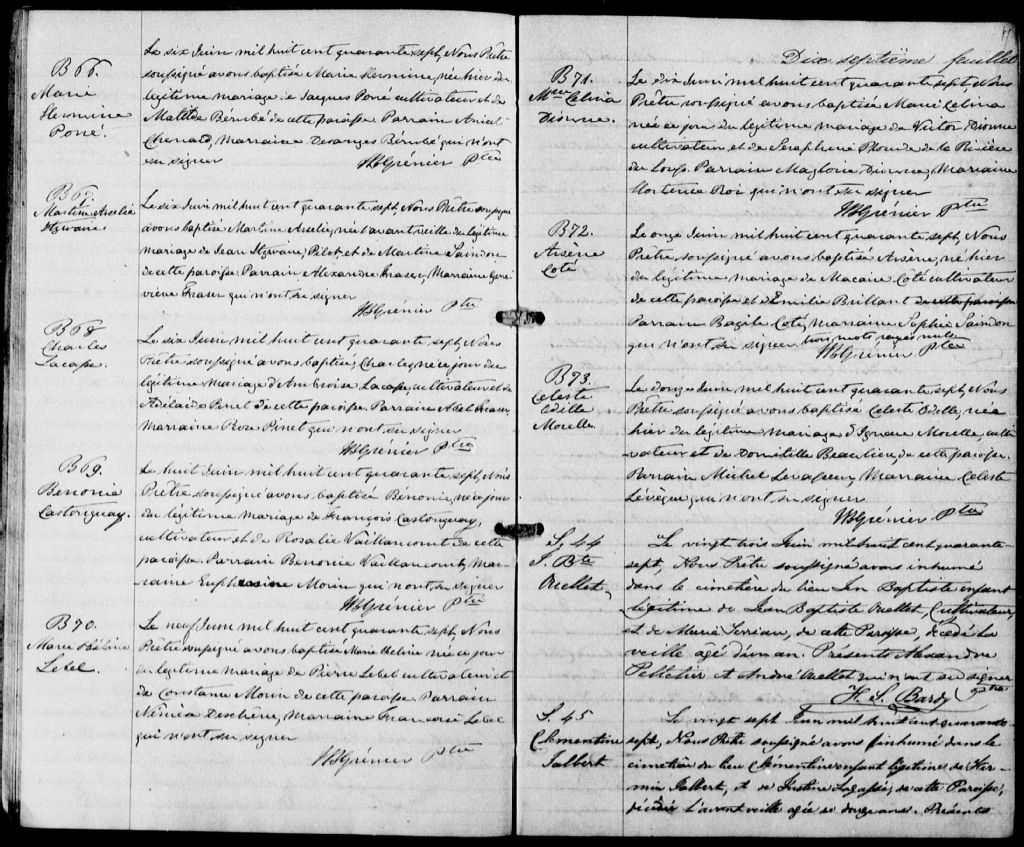 B 66.
Marie
Hermine
Poné.
Le six Juin mil huit cent quarante sept, Nous Prêtre
soussigné avons baptisé Marie Hermine, née hier du
légitime mariage de Jaques Poné cultivateur et de
Matilde Bérubé de cette paroisse. Parrain
Chenard, Marraine Desanges Bérubé qui n'ont
su signer
Grénier Ptre
B 67.
Martine Aurelie
Le six Juin mil huit cent quarante sept, Nous Prêtre soussigné
avons baptisé Martine Aurelie, née l'avant veille du légitime
mariage de Jean Pilot, et de Martine Saindon
de cette paroisse, Parrain Alexandre Fraser, Marraine Gene
viève Fraser qui n'ont su signer
Grénier Ptre
B 68
Charles
Lacasse.
Le six Juin mil huit cent quarante sept, Nous
Prêtre soussigné avons baptisé, Charles, né ce jour du
légitime Mariage d'Ambroise Lacasse cultivateur et de
Adélaide Pinet de cette paroisse, Parrain Abel Fraser,
Marraine Rose Pinet qui n'ont su signer
Grénier Ptre
B 69.
Benonie
Castonguay.
Le huit Juin mil huit cent quarante sept, Nous
Prêtre soussigné avons baptisé Benonie, né ce jour
du légitime mariage de François Castonguay,
cultivateur et de Rosalie Vaillancourt de cette
paroisse Parrain Benonie Vaillancourt, Mar-
raine Euphrosine Morin qui n'ont su signer
Grénier Ptre
B 70.
Marie Hélaine
Lebel.
Le neuf Juin mil huit cent quarante sept, Nous
Prêtre soussigné avons baptisé Marie Helaine née ce jour
du légitime mariage de Pierre Lebel cultivateur et
de Constance Morin de cette paroisse Parrain
Deschêne, Marraine Lebel
qui n'ont su signer
Grénier Ptre
Dix septième feuillet
B 71.
Mie Celina
Dionne.
Le dix Juin mil huit cent quarante sept, Nous
Prêtre soussigné avons baptisé Marie Celina
née ce jour du légitime mariage de Victor Dionne
cultivateur et de Seraphine Plourde de la Rivière
du Loup. Parrain Magloire Dionne, Marraine
Hortence Roi qui n'ont su signer
Grénier Ptre
B 72.
Arsène
Coté
Le onze Juin mil huit cent quarante sept, Nous
Prêtre soussigné avons baptisé Arsène, né hier
du légitime mariage de Macaire Coté cultivateur
de cette paroisse et d'Emilie Brillant de cette paroisse
Parrain Bazile Coté, Marraine Sophie Saindon
qui n'ont su signer, trois mots rayés nuls
Grénier Ptre
B 73.
Celeste
Odille
Morelle.
Le douze Juin mil huit cent quarante sept, Nous
Prêtre soussigné avons baptisé Celeste Odille, née
hier du légitime mariage d'Ignace Morelle, culti
vateur et de Domitille Beaulieu, de cette paroisse.
Parrain Michel Levasseur, Marraine Celeste
Leveque, qui n'ont su signer
Grénier Ptre
S. 44
J. Bte
Ouellet,
Le vingt trois Juin mil huit cent quarante
sept, Nous Prêtre soussigné avons inhumé
dans le cimetière du lieu Jean Baptiste enfant
légitime de Jean Baptiste Ouellet, Cultivateur,
et de Marie Terriau, de cette Paroisse, décédé la
veille agé d'un an. Présents Alexandre
Pelletier et André Ouellet qui n'ont su signer
H. S. Bardy Ptre
S. 45
Clémentine
Jalbert
Le vingt sept Juin mil huit cent quarante
sept, Nous Prêtre soussigné avons inhumé dans le
cimetière du lieu Clémentine enfant légitime de Fir-
min Jalbert, et de Justine Lagassé, de cette Paroisse,
décédée l'avant veille agée de douze ans. Présents